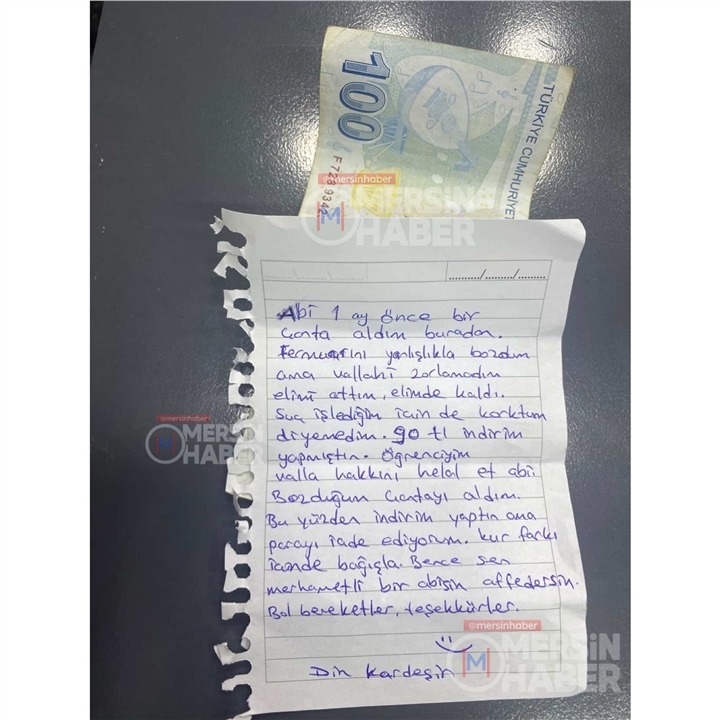 100
TÜRKİYE CUMHURİYET
@mersinhaber
MERSİN
HABER
......./......./.......
......./......./.......
Abi 1 ay önce bir
Çanta aldım buradan.
Fermuarını yanlışlıkla bozdum
ama vallahi zorlamadım
elimi attım, elimde kaldı.
Suç işlediğim için de korktum
diyemedim. 90 tl indirim
yapmıştın. Öğrenciyim
valla hakkını helal et abi.
Bozduğum Çantayı aldım.
Bu yüzden indirim yaptın ama
parayı iade ediyorum. kur farkı
içinde bağışla. Bence sen
merhametli bir abisin affedersin.
Bol bereketler, teşekkürler.
Din kardeşin
@mersinhaber
MERSİN
HABER
@mersinhaber
MERSİN
HABER